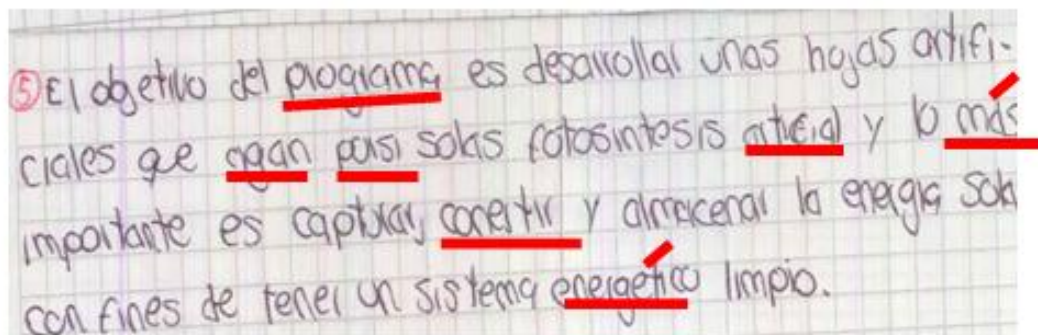 ⑤ El objetivo del programa es desarrollar unas hojas artifi-
ciales que agan porsi solas fotosintesis artificial y lo más
importante es capturar, conertir y almacenar la energia sola
con fines de tener un sistema energético limpio.